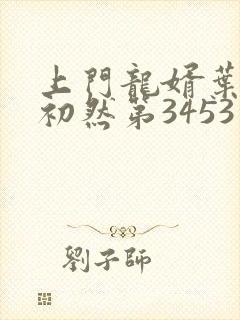 上門龍婿葉
初然第3453
劉子師